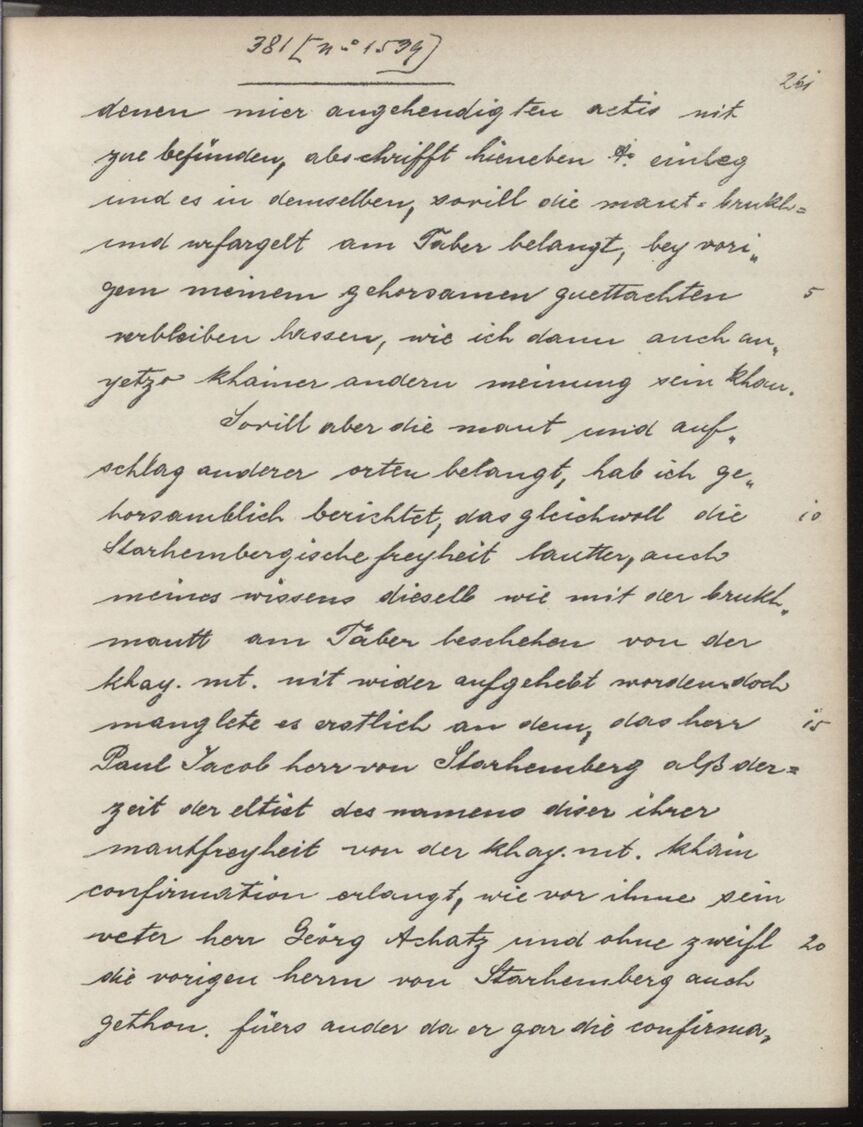 381 [nº 1539]
261
denen mier angehendigten actis nit
zue befünden, abschrifft hieneben A. einleg
und es in demselben, sovill die maut= brukh=
und urfargelt am Taber belangt, bey vori„
gem meinem gehorsamen guettachten 5
verbleiben lassen, wie ich dann auch an„
yetzo khainer andern meinung sein khan.
Sovill aber die maut und auf„
schlag anderer orten belangt, hab ich ge„
horsamblich berichtet, das gleichwoll die 10
Starhembergische freyheit lautter, auch
meines wissens dieselb wie mit der brukh„
mautt am Täber beschehen von der
khay. mt. nit wider aufgehebt worden. doch
manglete es erstlich an dem, das herr 15
Paul Jacob herr von Starhemberg alß der=
zeit der eltist des namens diser ihrer
mautfreyheit von der khay. mt. khain
confirmation erlangt, wie vor ihme sein
veter herr Geörg Achatz und ohne zweifl 20
die vorigen herrn von Starhemberg auch
gethon. füers ander da er gar die confirma„